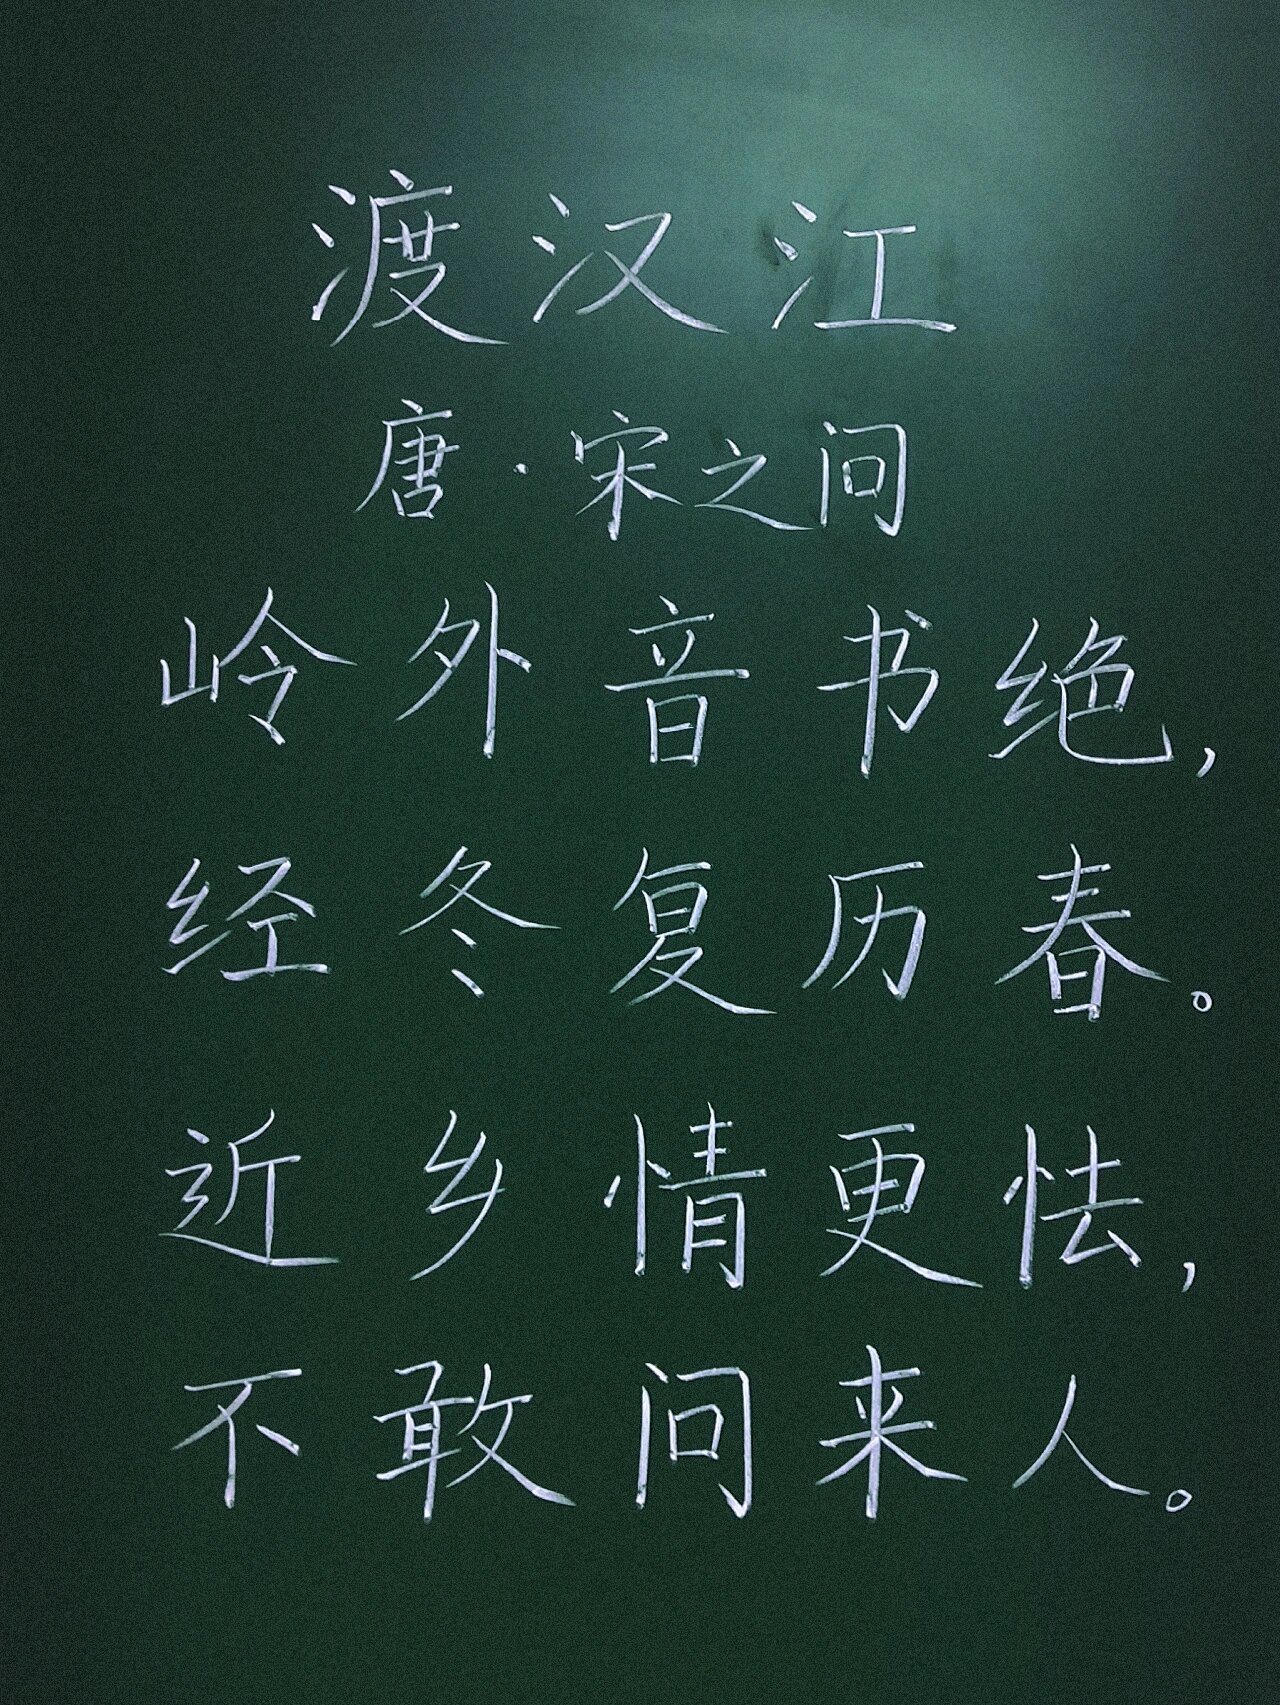 渡汉江
唐·宋之问
岭外音书绝，
经冬复历春。
近乡情更怯，
不敢问来人。